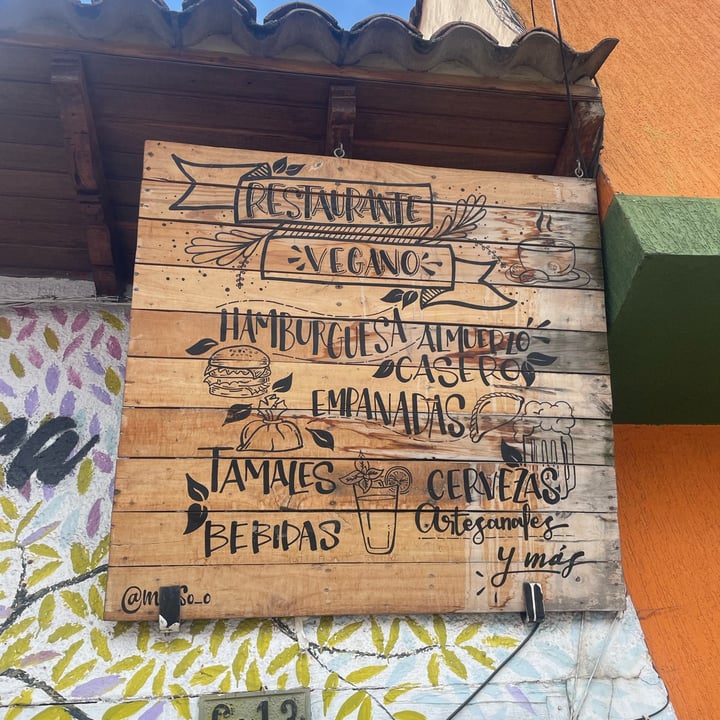 RESTAURANTE
VEGANO
HAMBURGUESA ALMUERZO
CASERO
EMPANADAS
TAMALES
CERVEZAS
Artesanales
BEBIDAS
y más